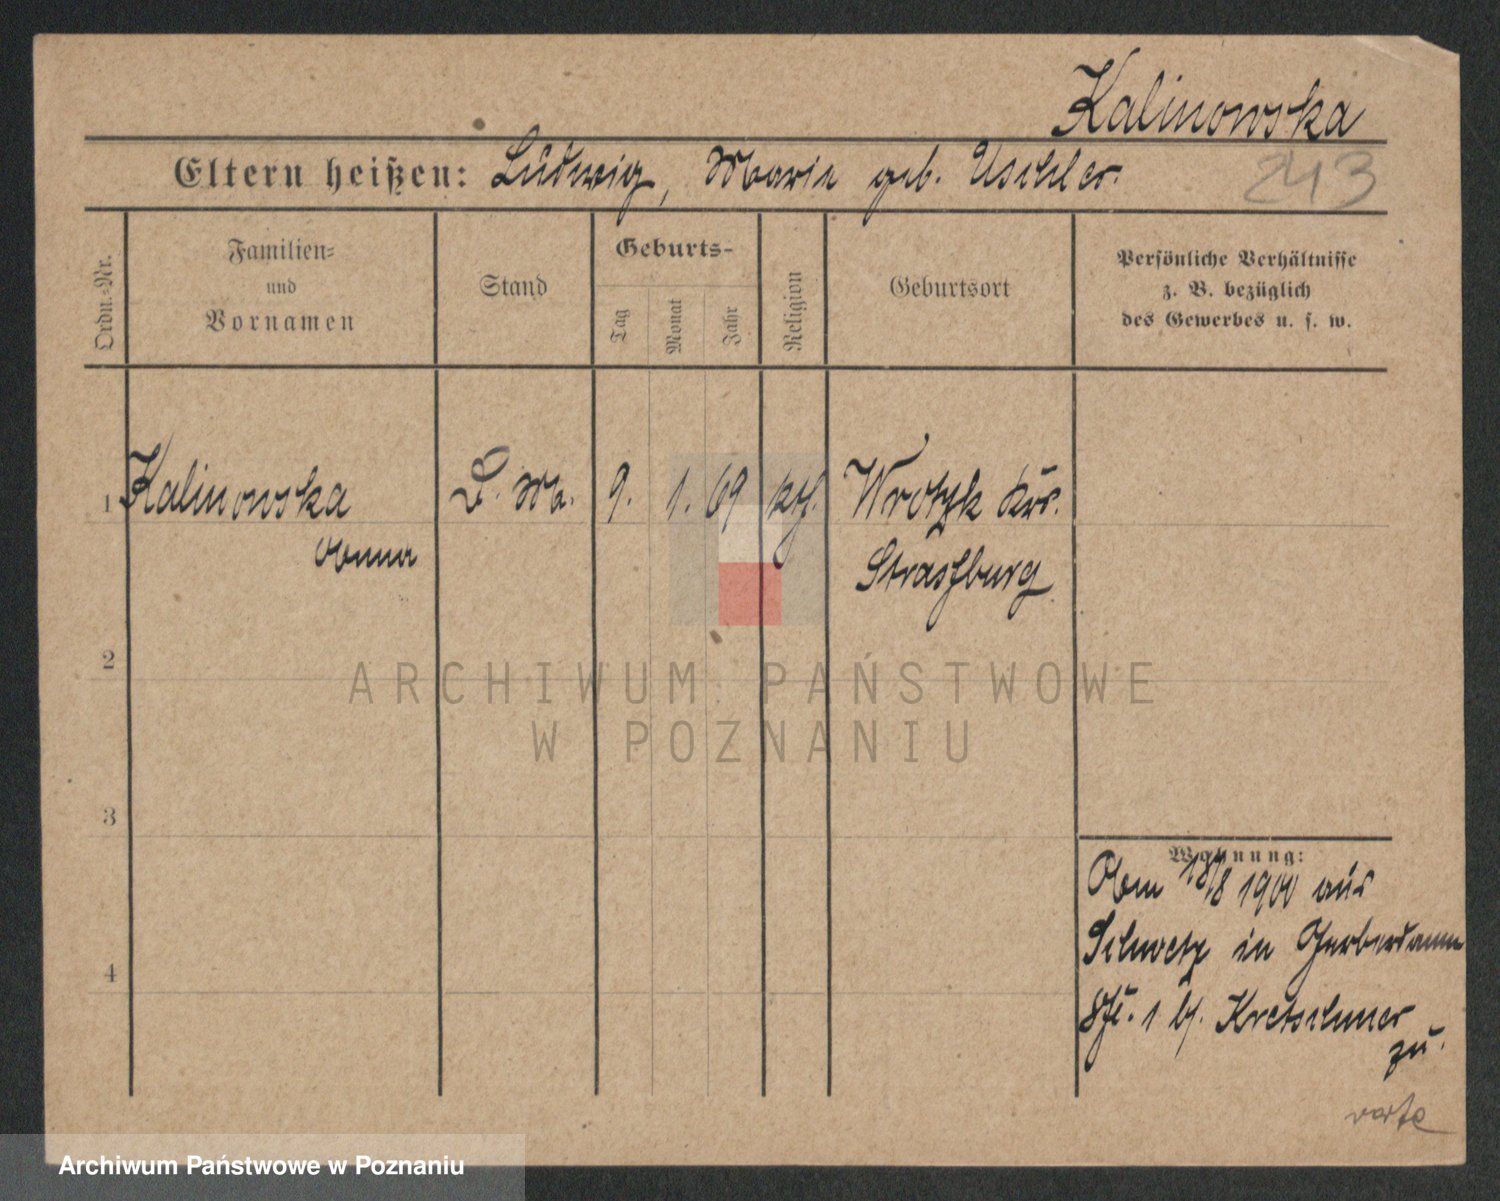 Kalinowska
Eltern heißen: Ludwig, Marie geb. Uschler.
243
Ordn.-Nr.
Familien-
und
Vornamen
Stand
Geburts-
Tag
Monat
Jahr
Religion
Geburtsort
Persönliche Verhältnisse
z. B. bezüglich
des Gewerbes u. s. w.
1 Kalinowska D. M. 9. 1. 69 kth. Wrotzk Krs.
Anna Strasburg
2
ARCHIWUM PAŃSTWOWE
W POZNANIU
3
Wohnung:
Am 18/8 1900 aus
Schwetz in Gerberdamm
4
1 b/. Kretschmer
zu.
Archiwum Państwowe w Poznaniu